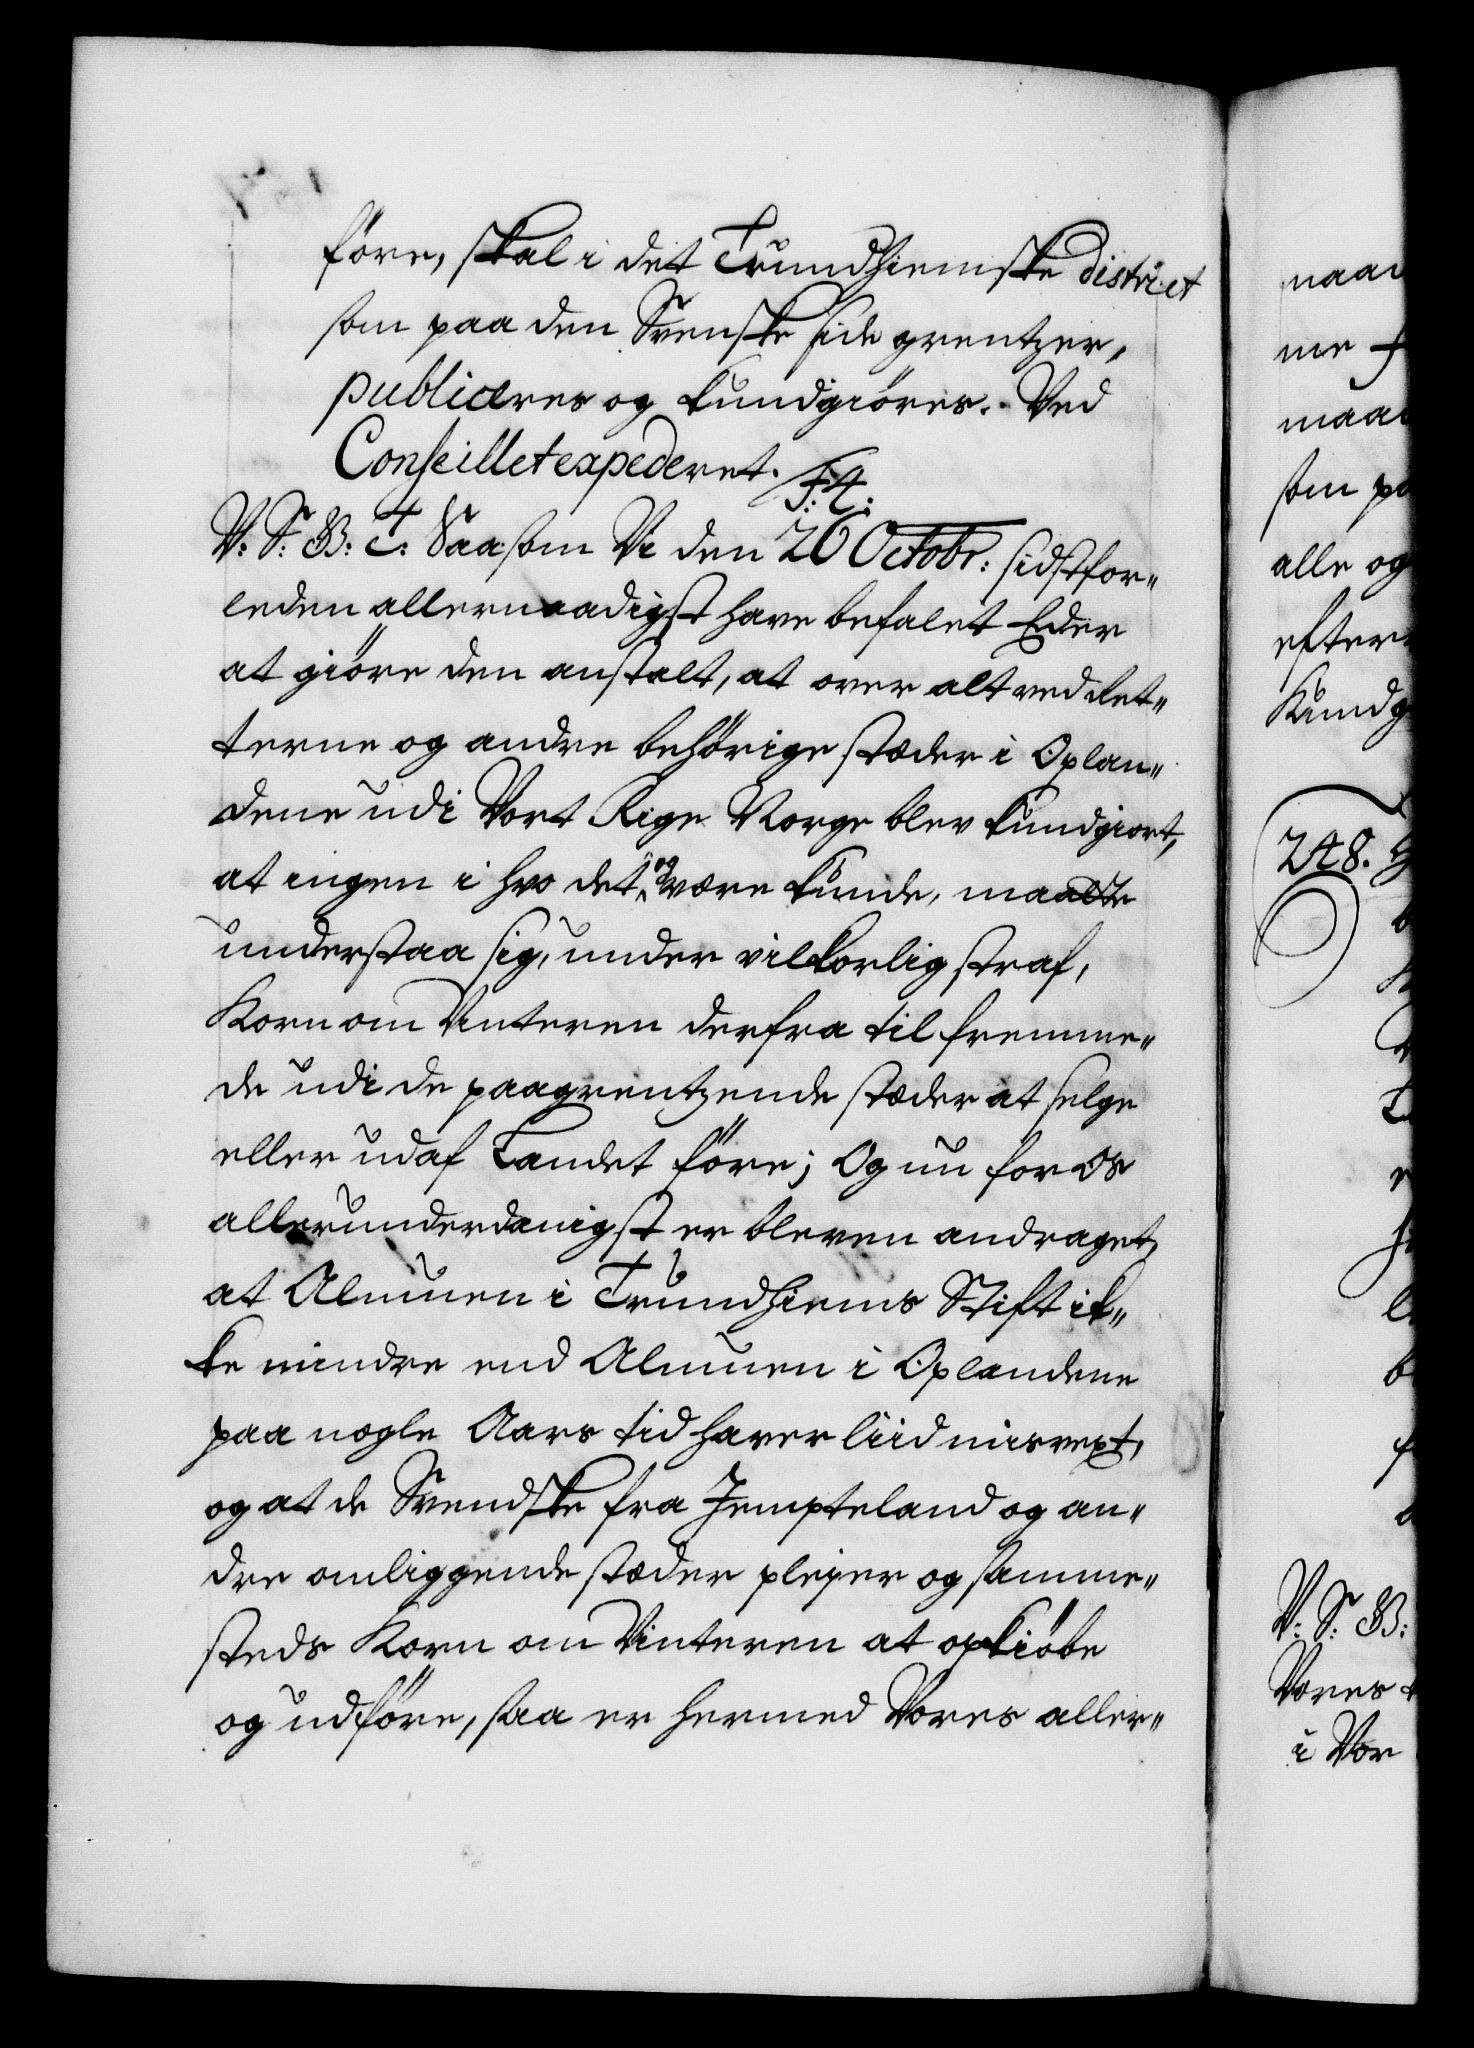 före, skal i det Trundhiemske district
som paa den Svenske side grentzer,
publiceres og kundgiöres. Ved
Conseillet expederet.
F: 4:
V: S: B: T: Saasom Vi den 26 Octobr: sidstfor„
leden allernaadigst have befalet Eder
at giöre den anstalt, at over alt ved Ret„
terne og andre behörige stæder i Oplan„
dene udi Vort Rige Norge blev kundgiort,
at ingen i hvo det og være kunde, maatte
understaa sig, under vilkorlig straf,
Korn om Vinteren derfra til fremme„
de udi de paagrentzende stæder at selge
eller udaf Landet före; Og nu for Os
allerunderdanigst er bleven andraget,
at Almuen i Trundhiems Stift ik„
ke mindre end Almuen i Oplandene
paa nogle Aars tid haver liid misvext,
og at de Svendske fra Jempteland og an„
dre omliggende stæder plejer og samme„
steds Korn om Vinteren at opkiöbe
og udföre, saa er hermed Vores aller„
naar
me
maa
som
alle og
efter
Kundg
248.
V: S: B:
Vores
i Vor